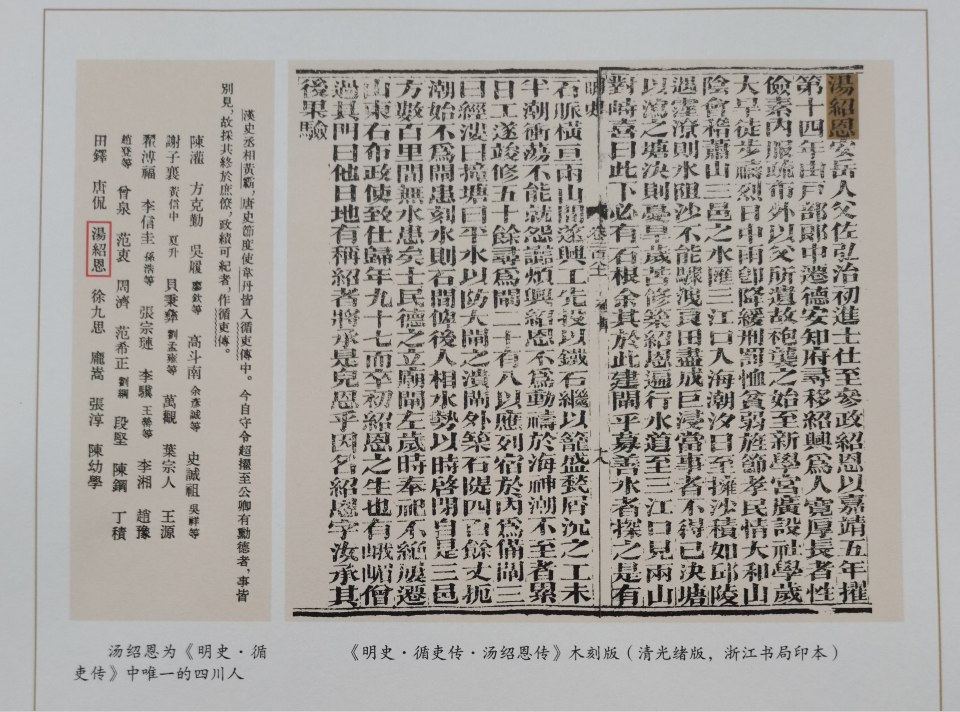 湯紹恩安岳人父佐弘治初進士仕至參政紹恩以嘉靖五年擢
第十四年由戸部郎中遷德安知府尋移紹興爲人寬厚長者性
儉素内服疏布外以父所遺故袍襲之始至新學宮廣設社學歲
大旱徒步禱烈日中雨卽降緩刑罰恤貧弱旌節孝民情大和山
陰會稽蕭山三邑之水匯三江口入海潮汐日至擁沙積如邱陵
遇霪潦則水阻沙不能驟洩良田盡成巨浸當事者不得已決塘
以瀉之塘決則憂旱歲苦修築紹恩遍行水道至三江口見兩山
對峙喜曰此下必有石根余其於此建閘乎募善水者探之果有
明史
石脈橫亘兩山間遂興工先投以鐵石繼以籠盛甃屑沉之工未
半潮衝蕩不能就怨讟煩興紹恩不爲動禱於海神潮不至者累
日工遂竣修五十餘尋爲閘二十有八以應列宿於内爲備閘三
曰經漊曰撞塘曰平水以防大閘之潰閘外築石隄四百餘丈扼
潮始不爲閘患刻水則石間俾後人相水勢以時啓閉自是三邑
方數百里間無水患矣士民德之立廟閘左歲時奉祀不絶屢遷
山東右布政使致仕歸年九十七而卒初紹恩之生也有峨嵋僧
過其門曰他日地有稱紹者將承是兒恩乎因名紹恩字汝承其
後果驗
漢史丞相黃霸，唐史節度使韋丹皆入循吏傳中。今自守令超擢至公卿有勳德者，事皆
別見，故採其終於庶僚，政績可紀者，作循吏傳。
陳灌 方克勤 吳履 廖欽等 高斗南 余彥誠等 史誠祖 吳祥等
謝子襄 黃信中 夏升 貝秉彝 劉孟雍等 萬觀 葉宗人 王源
翟溥福 李信圭 孫浩等 張宗璉 李驥 王罃等 李湘 趙豫
趙登等 曾泉 范衷 周濟 范希正 劉綱 段堅 陳鋼 丁積
田鐸 唐侃 湯紹恩 徐九思 龐嵩 張淳 陳幼學
汤绍恩为《明史·循
吏传》中唯一的四川人
《明史·循吏传·汤绍恩传》木刻版（清光绪版，浙江书局印本）